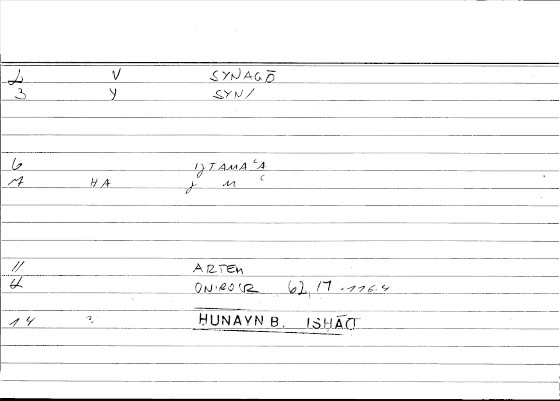 2 V SYNAGŌ
3 Y SYN/
6 IJTAMAʿA
7 HA J M ʿ
11 ARTEM
12 ONIROCR 62,17 - 116.4
14 2 HUNAYN B. ISHĀQ